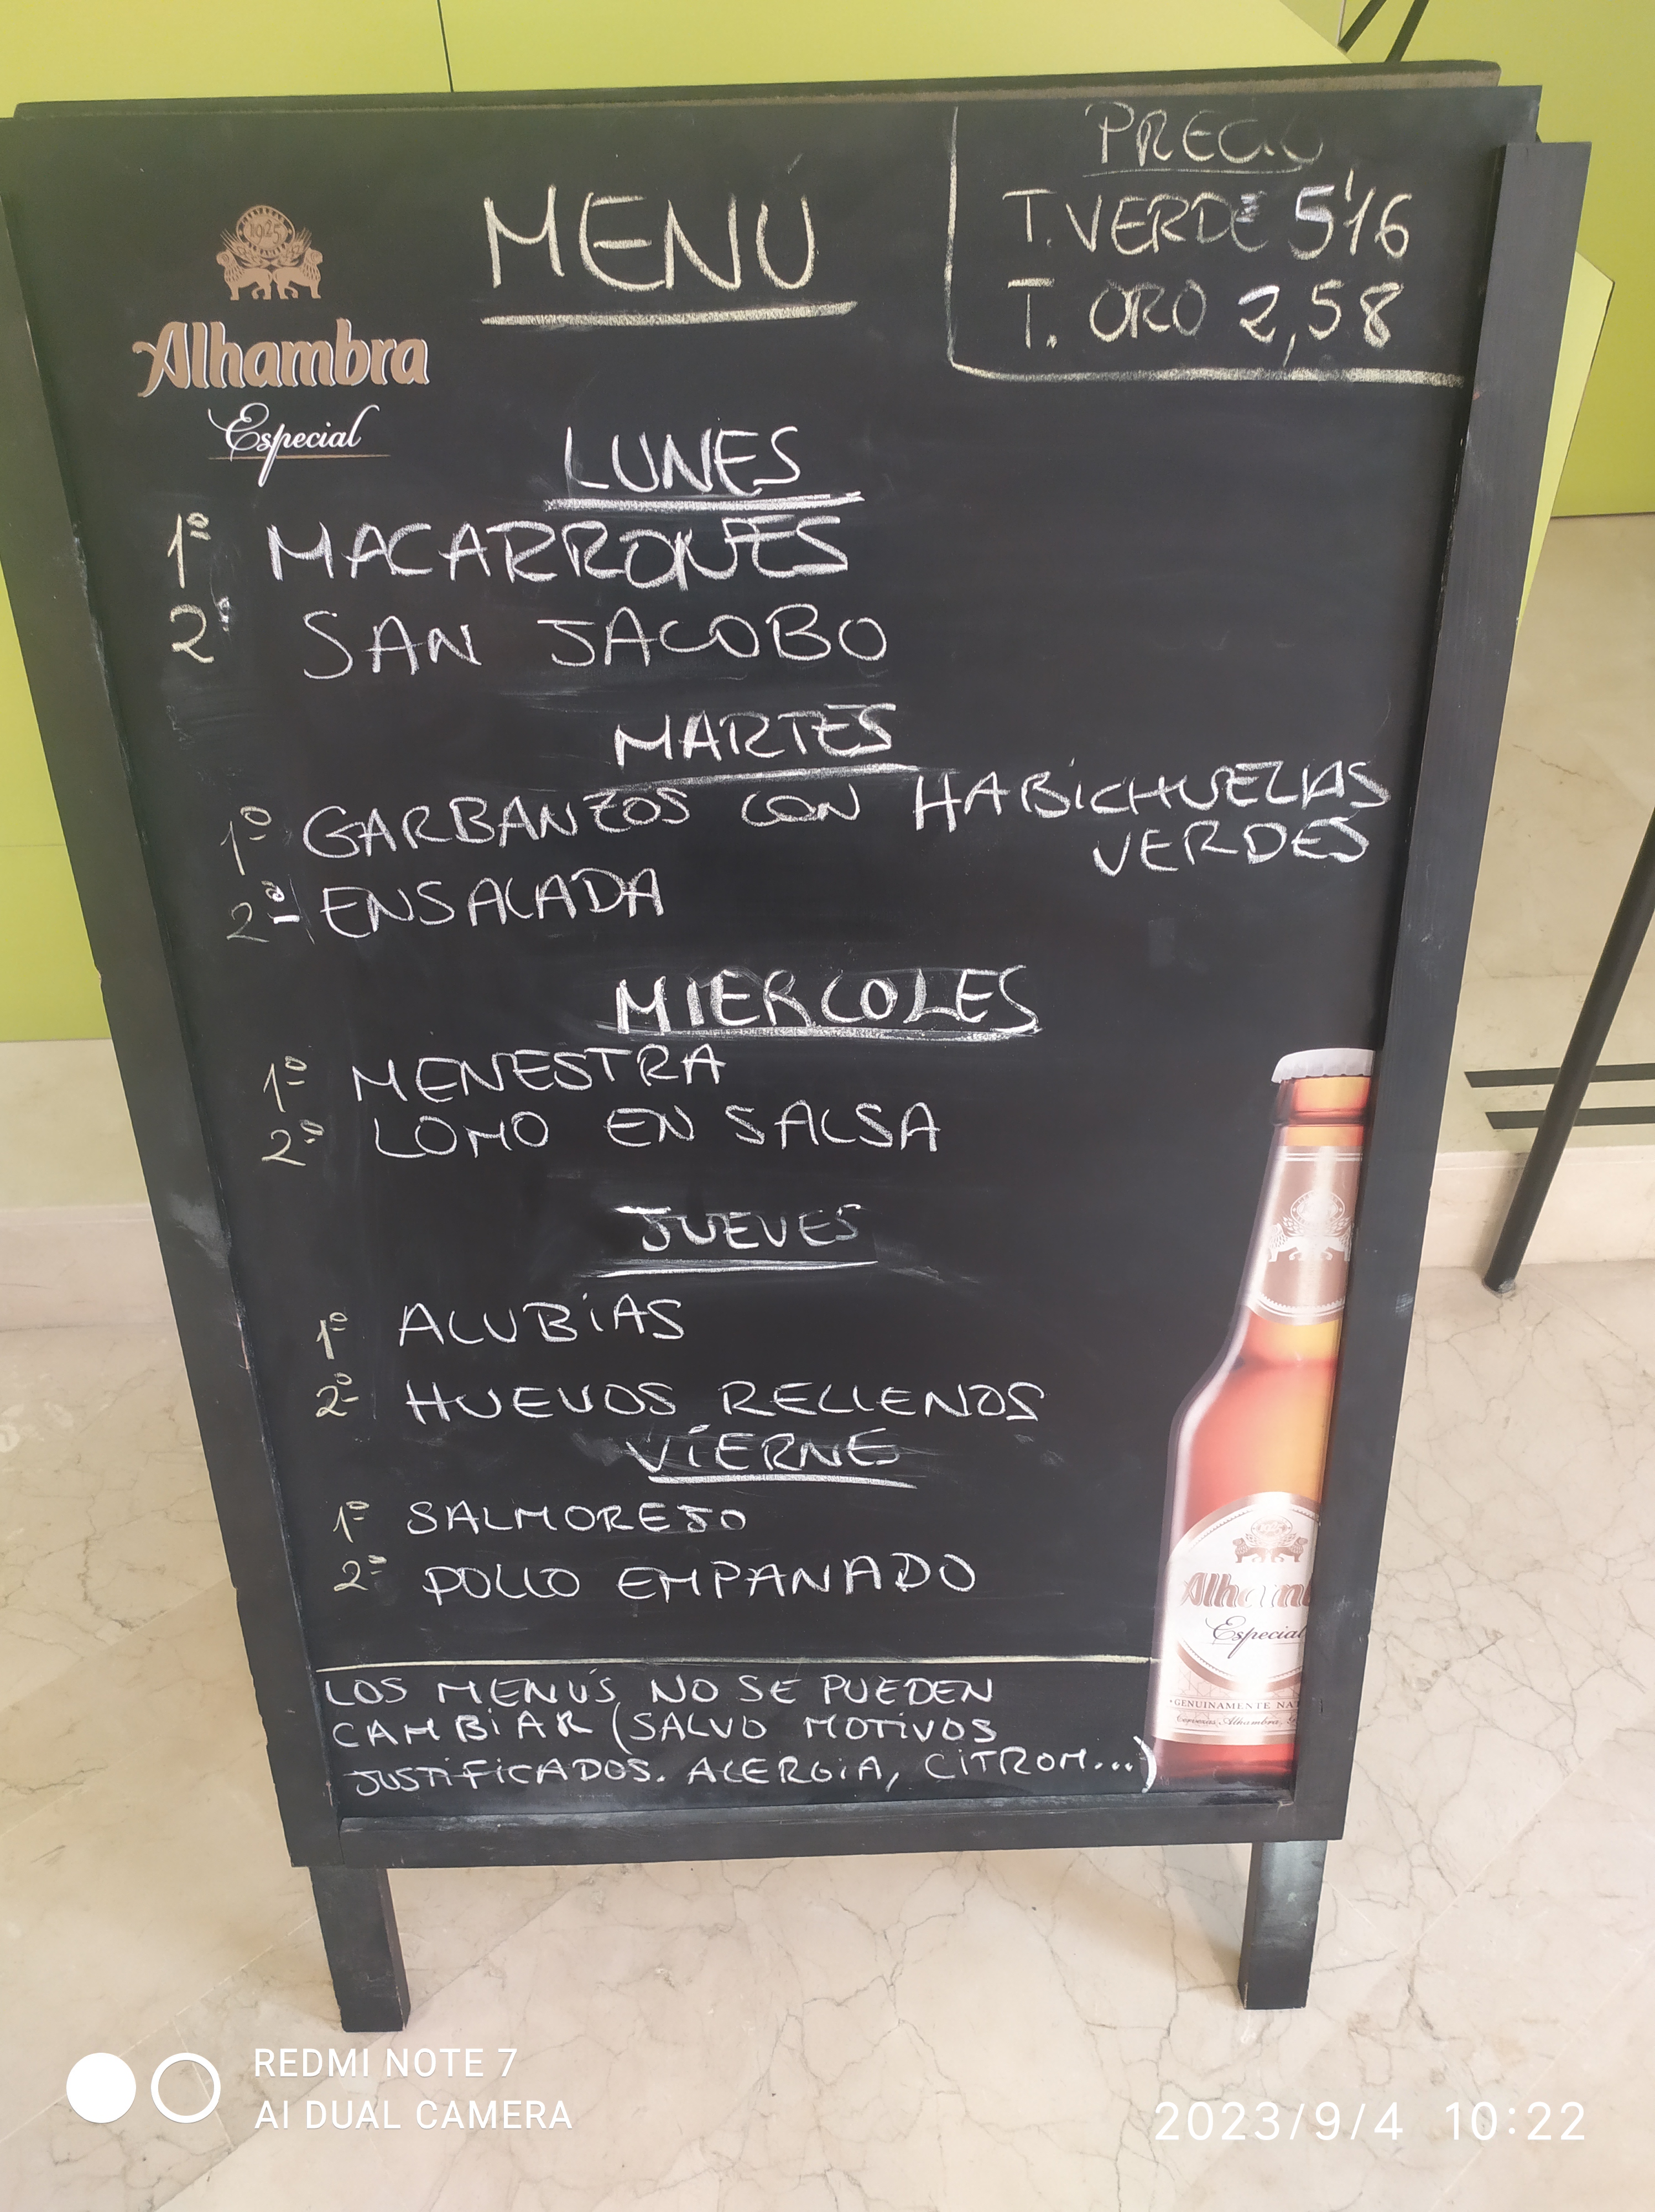 PRECIO
MENÚ
T. VERDE 5'16
T. ORO 2,58
1925
Alhambra
Especial
LUNES
1º MACARRONES
2º SAN JACOBO
MARTES
1º GARBANZOS CON HABICHUELAS
VERDES
2º ENSALADA
MIERCOLES
1º MENESTRA
2º LOMO EN SALSA
JUEVES
1º ALUBIAS
2º HUEVOS RELLENOS
VIERNE
1º SALMOREJO
2º POLLO EMPANADO
LOS MENÚS NO SE PUEDEN
CAMBIAR (SALVO MOTIVOS
JUSTIFICADOS. ALERGIA, CITROM...)
Alhamb
Especial
GENUINAMENTE NAT
Cervezas Alhambra,
REDMI NOTE 7
AI DUAL CAMERA
2023/9/4 10:22